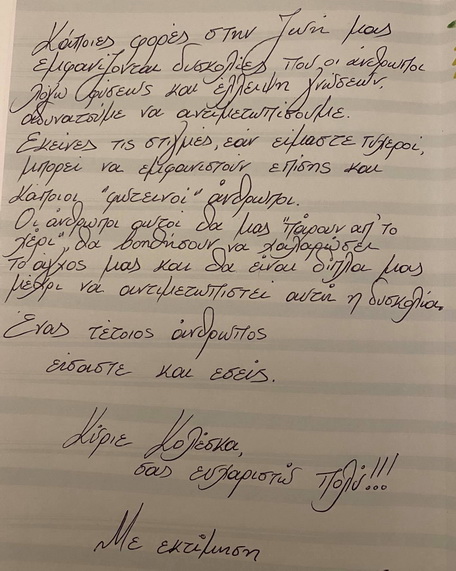 Κάποιες φορές στην ζωή μας
εμφανίζονται δυσκολίες που οι άνθρωποι
λόγω φύσεως και έλλειψη γνώσεων,
αδυνατούμε να αντιμετωπίσουμε.
Εκείνες τις στιγμές, εάν είμαστε τυχεροί,
μπορεί να εμφανιστούν επίσης και
κάποιοι "φωτεινοί" άνθρωποι.
Οι άνθρωποι αυτοί θα μας "πάρουν απ' το
χέρι", θα βοηθήσουν να χαλαρώσει
το άγχος μας και θα είναι δίπλα μας
μέχρι να αντιμετωπιστεί αυτή η δυσκολία.
Ένας τέτοιος άνθρωπος
είσαστε και εσείς.
Κύριε Κολέσκα,
σας ευχαριστώ πολύ!!!
Με εκτίμηση